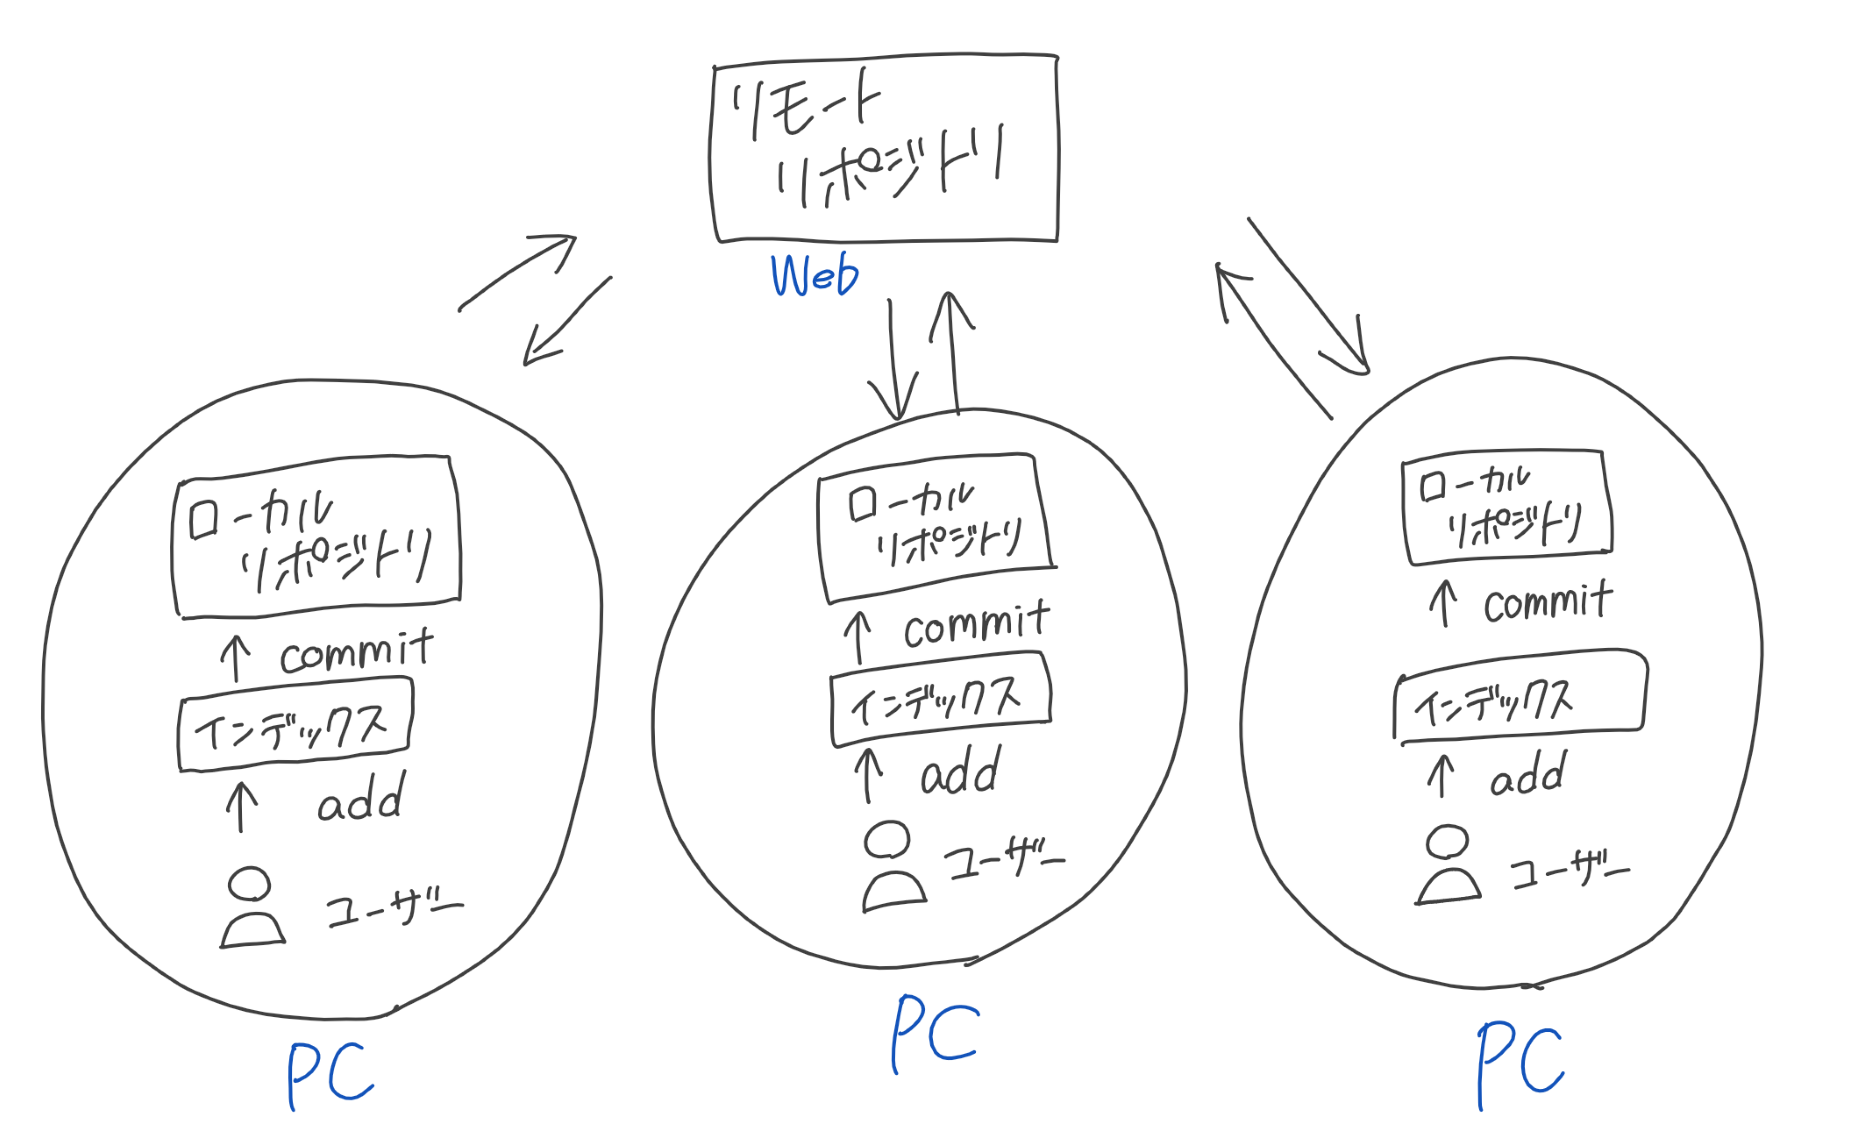 リモート
リポジトリ
Web
ローカル
リポジトリ
commit
インデックス
add
ユーザー
PC
ローカル
リポジトリ
commit
インデックス
add
ユーザー
PC
ローカル
リポジトリ
commit
インデックス
add
ユーザー
PC